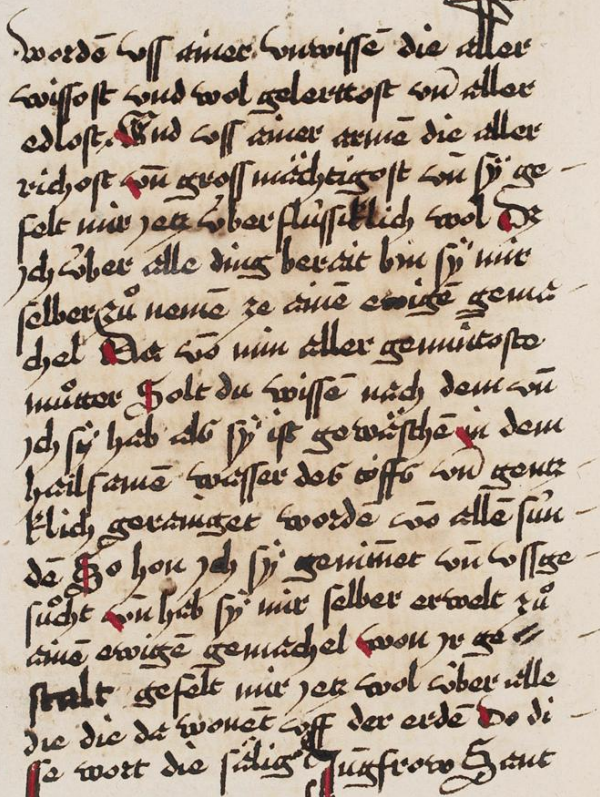 wordē vss ainer vnwissē die aller
wissost vnd wol gelerttost vn̄ aller
edlost Vnd vss ainer armē die aller
richost vn̄ gross mächtigost vn̄ sÿ ge
felt mir yetz v̈ber flüssiklich wol Dz
ych v̈ber alle ding berait bin sÿ mir
selber zů nemē ze ainē ewigē gema
chel Da vō min aller gemintoste
můtter Solt du wissē nach dem vn̄
ych sÿ hab als sÿ ist gewäschē in dem
hailsamē wasser des töffs vn̄ gentz
klich gerainget wordē vō allē sün
dē So hon ych sÿ geminnet vn̄ vssge
sůcht vn̄ hab sÿ mir selber erwelt zů
ainē ewigē gemachel won yr ge
stalt gefelt mir yetz wol v̈ber alle
die die da wonēt vff der erdē Do di
se wort die sälig Jungfrow Sant